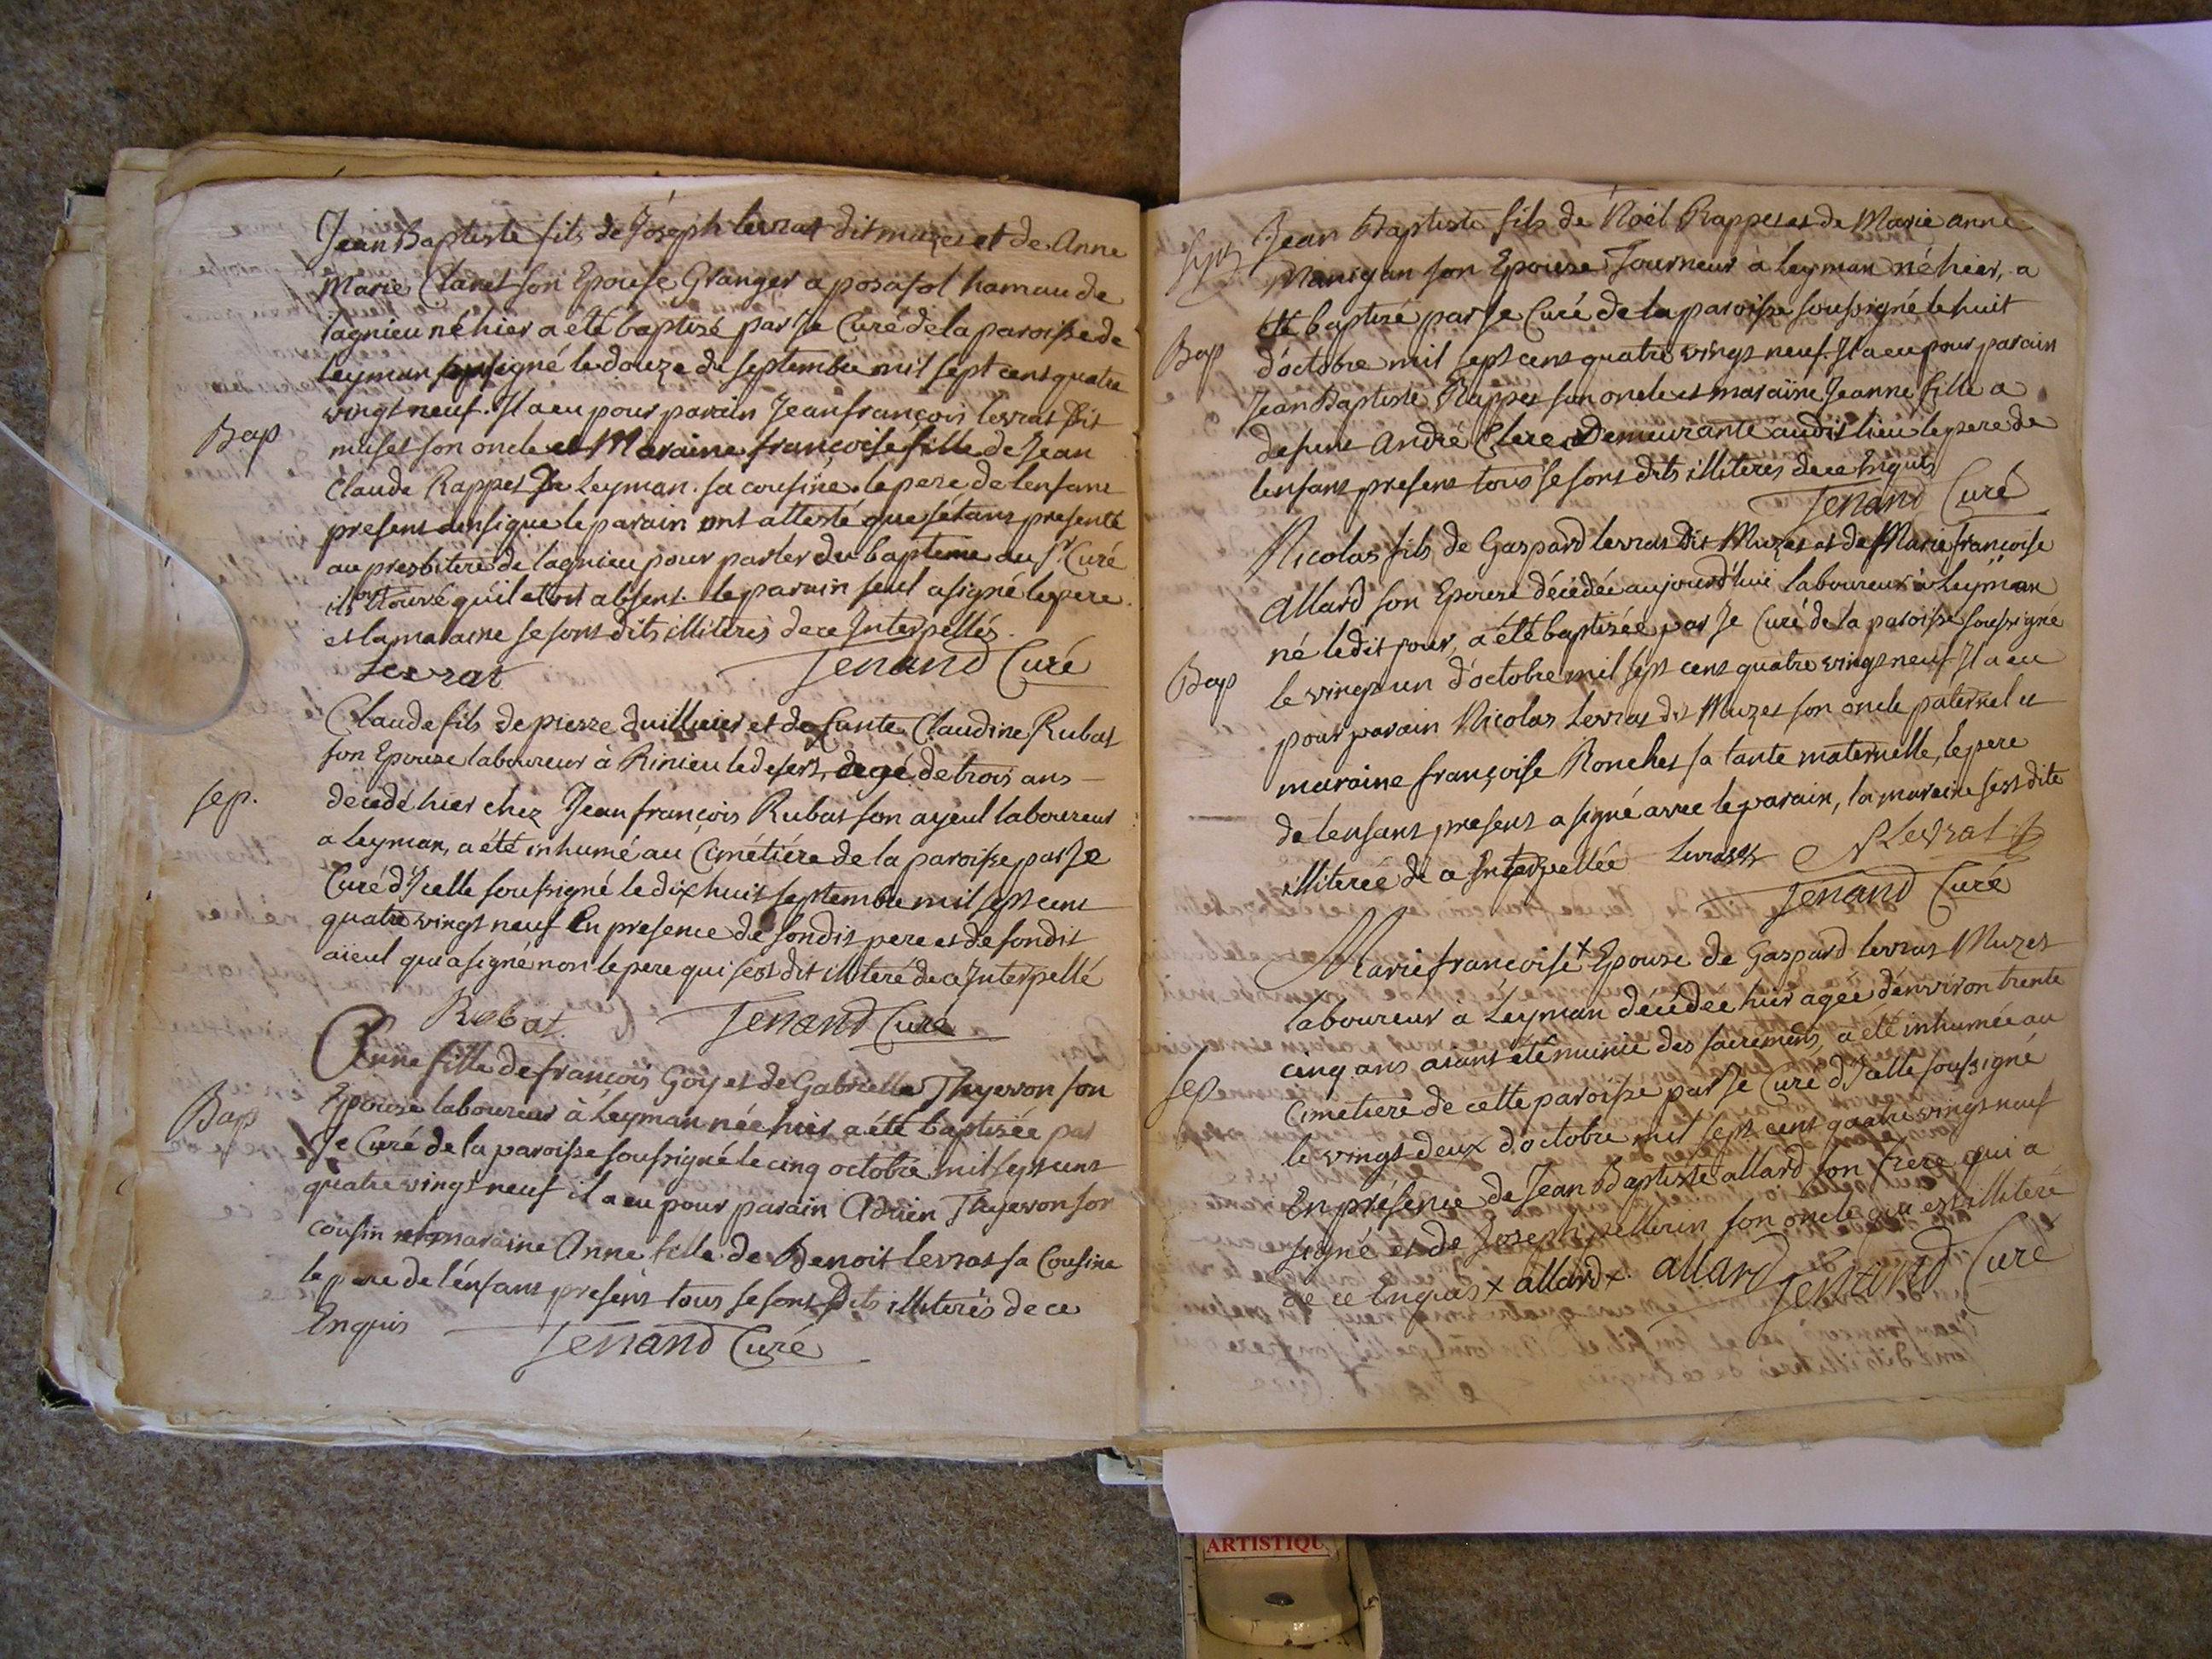 Jean Baptiste fils de Joseph levrat dit muzet et de Anne
Marie Claret son Epouse Granger a posafol hamau de
lagnieu né hier a été baptisé par Je Curé de la paroisse de
Leyman soussigné le douze de septembre mil sept cent quatre
vingt neuf. Il a eu pour parain Jean françois levrat dit
Bap
muset son oncle et Maraine françoise fille de Jean
Claude Rappet De Leyman. sa cousine. le pere de lenfant
present ainsi que le parain ont attesté que s'étant presenté
au presbitere de lagnieu pour parler du bapteme au Sr. Curé
ils ont trouvé qu'il etoit absent le parain seul a signé le pere
et la maraine se sont dits illiterés de ce Interpellés.
Levrat Tenand Curé
Claude fils de pierre duillier et de funte Claudine Rubat
son Epouse laboureur à Rinieu le desert, agé de trois ans
sep.
decedé hier chez Jean françois Rubat son ayeul laboureur
a Leyman, a été inhumé au Cimétiére de la paroisse par Je
Curé d'Icelle soussigné le dix huit septembre mil sept cent
quatre vingt neuf En presence de sondit pere et de sondit
aieul qui a signé non le pere qui s'est dit illiteré de ce Interpellé
Robat. Tenand Curé
Anne fille de françois Goy et de Gabrielle Thyevon son
Epouse laboureur à Leyman née hier a été baptisée par
Bap
Je Curé de la paroisse soussigné le cinq octobre mil sept cent
quatre vingt neuf il a eu pour parain Adrien Thyevon son
cousin et maraine Anne fille de Benoit levrat sa Cousine
le pere de l'énfant présent tous se sont Dits illiterés de ce
Enquis Tenand Curé
Jean Baptiste fils de Noël Rappet et de Marie anne
son Epouse Tourneur à leyman né hier, a
été baptisé par Je Curé de la paroisse soussigné le huit
Bap
d'octobre mil sept cent quatre vingt neuf. Il a eu pour parain
Jean Baptiste Rappet son oncle et maraine Jeanne fille a
defunt André Clerc Demeurante audit lieu le pere de
lenfant present tous se sont dits illiteres de ce Enquis
Tenand Curé
Nicolas fils de Gaspard levrat Dit Muzet et de Marie françoise
Allard son Epouse décédée aujourd'hui laboureur à Leyman
né ledit jour, a été baptisée par Je Curé de la paroisse soussigné
Bap
le vingt un d'octobre mil sept cent quatre vingt neuf Il a eu
pour parain Nicolas Levrat dit Muzet son oncle paternel et
maraine françoise Ronchet sa tante maternelle, le pere
de lenfant present a signé avec le parain, la maraine s'est dite
illiterée de ce Interpellée Levrat N Levrat
Tenand Curé
Marie françoise x Epouse de Gaspard levrat Muzet
laboureur a Leyman décédée hier agée d'environ trente
cinq ans aiant été munie des sacremens, a été inhumée au
sep
Cimetiere de cette paroisse par Je Curé d'Icelle soussigné
le vingt deux d'octobre mil sept cent quatre vingt neuf
En présence de Jean Baptiste allard son frere qui a
signé et de Joseph pellerin son oncle qui est illiteré
de ce Enquis x allard x. allard Tenand Curé
ARTISTIQU